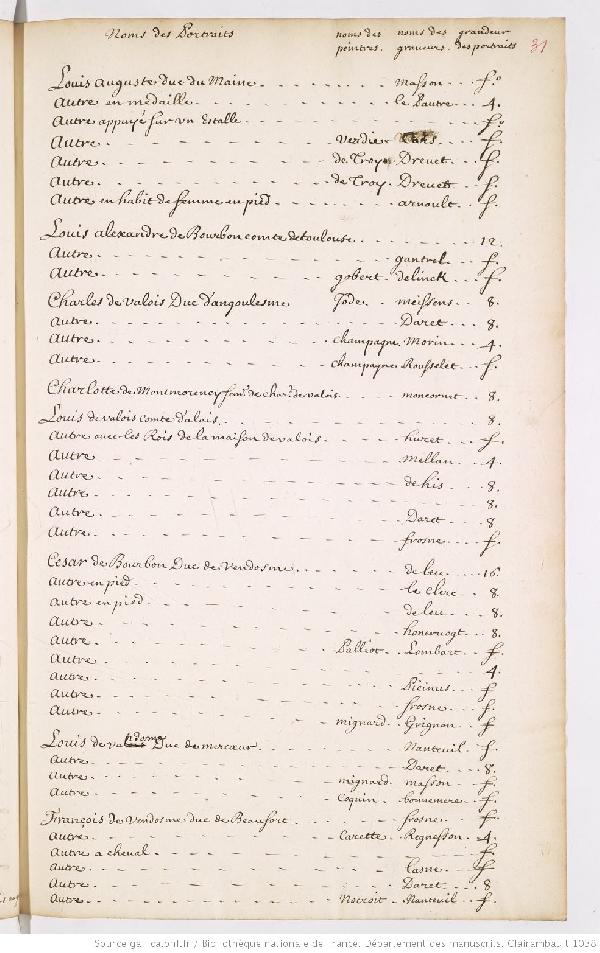 Noms des Portraits noms des peintres noms des graveurs grandeur des portraits 31
Louis Auguste Duc du Maine masson f.º
Autre en medaille le Pautre 4.
Autre appuyé sur un Estalle f.
Autre Verdier f.
Autre de Troye Drevet f.
Autre de Troy Drevett f.
Autre en habit de femme en pied arnoult f.
Louis alexandre de Bourbon comte de toulouse 12
Autre gantrel f.
Autre gobert delinck f.
Charles de Valois Duc d'angoulesme Jode meissens 8.
Autre Daret 8.
Autre champagne Morin 4.
Autre champagne Rousselet f.
Charlotte de Montmorency fem.e de char. de valois moncornet 8.
Louis de valois comte d'alais 8.
Autre avec les Rois de la maison de valois huret f.
Autre Mellan 4.
Autre de his 8.
Autre 8.
Autre Daret 8
Autre frosne f.
Cesar de Bourbon Duc de Vendosme de leu 16.
Autre en pied le clerc 8.
Autre en pied de leu 8.
Autre honervogt 8.
Autre Palliot Lombart f.
Autre 4.
Autre Picinus f.
Autre frosne f.
Autre mignard Grignon f.
Louis de vandosme Duc de mercœur Nanteuil f.
Autre Daret 8.
Autre mignard masson f.
Autre Coquin bonnemere f.
François de Vendosme duc de Beaufort frosne f.
Autre Carette Regnesson 4.
Autre a cheval f.
Autre Lasne f.
Autre Daret 8
Autre Nocroit Nanteuil f.
Source gallica.bnf.fr / Bibliothèque nationale de France. Département des manuscrits. Clairambault 1038